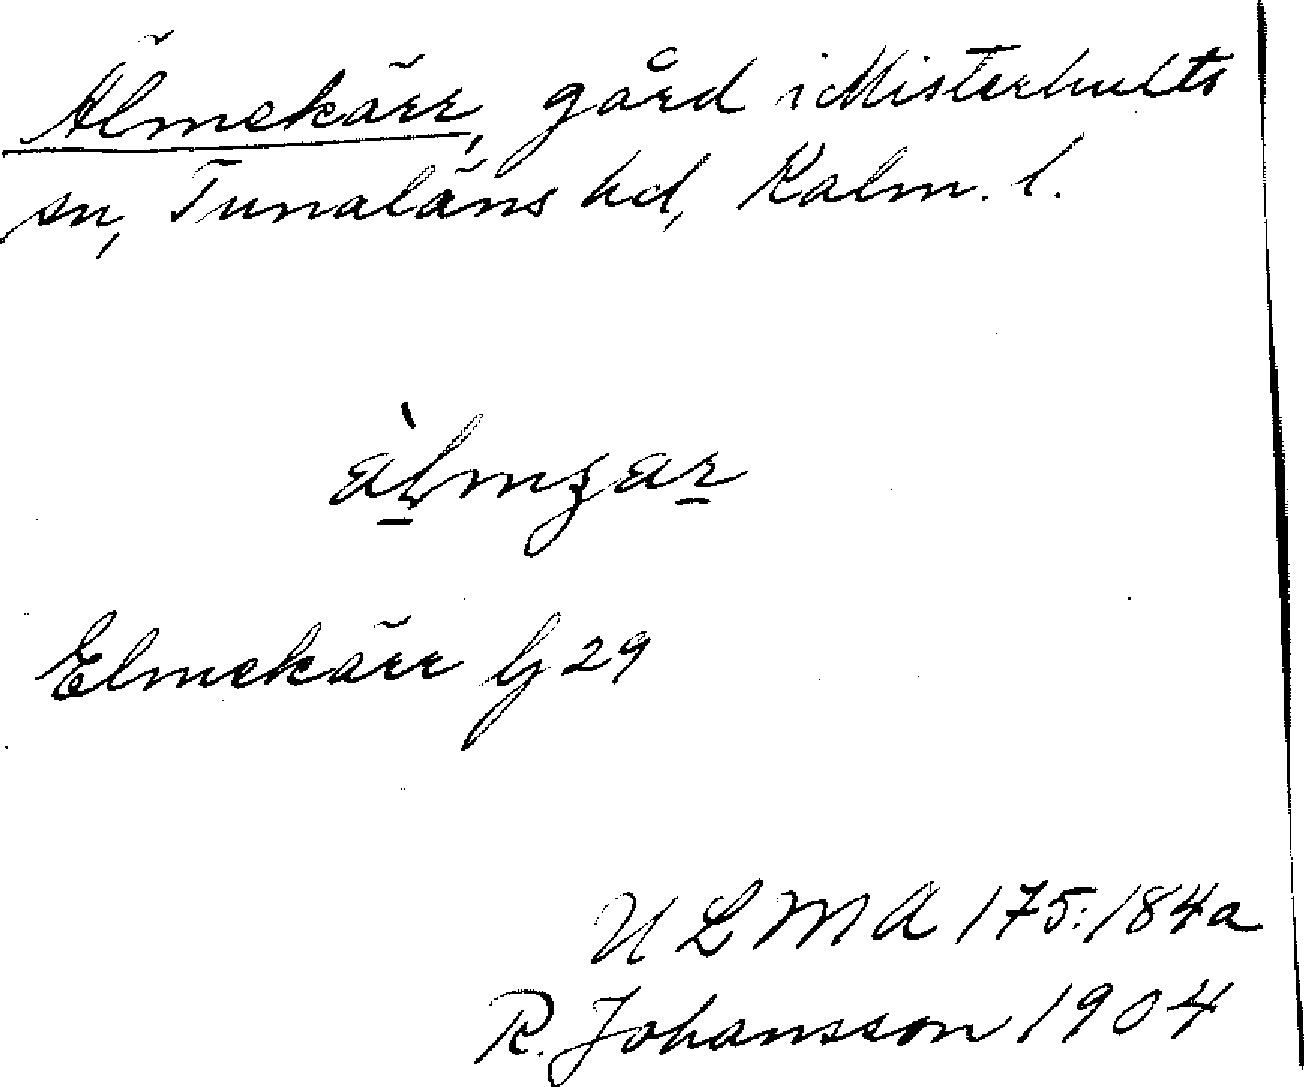 Älmekärr, gård i Misterhults
sn, Tunaläns hd, Kalm. l.
Elmekärr G 29
ULMA 175:184a
R. Johansson 1904